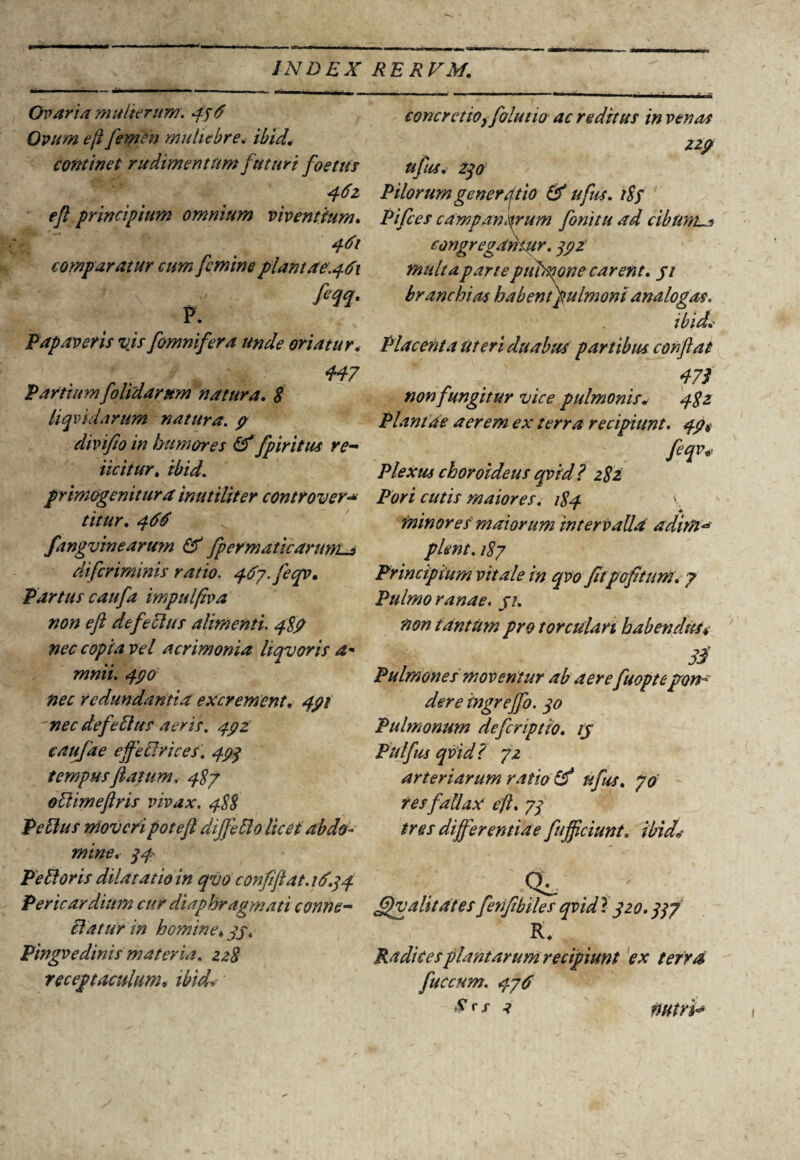 INDEX RERVM.
Ovaria mulierum. 456
Ovum eſt ſemen muliebre. ibid.
continet rudimentum futuri foetus
462
eſt principium omnium viventium.
461
comparatur cum ſemine plantae. 461
ſeqq.
P.
Papaveris vis ſomnifera unde oriatur.
447
Partium ſolidarum natura. 8
liqvidarum natura. 9
diviſio in humores & ſpiritus re-
iicitur. ibid.
primogenitura inutiliter controver-
titur. 466
ſangvinearum & ſpermaticarum
diſcriminis ratio. 467. ſeqv.
Partus cauſa impulſiva
non eſt defectus alimenti. 489
nec copia vel acrimonia liqvoris a-
mnii. 490
nec redundantia excrement. 491
nec defectus aeris. 492
cauſae effectrices. 493
tempus ſtatum. 487
octimeſtris vivax. 488
Pectus moveri poteſt diſſecto licet abdo-
mine. 34
Pectoris dilatatio in qvo conſiſtat. 16.34
Pericardium cur diaphragmati conne-
ctatur in homine. 35.
Pingvedinis materia. 228
receptaculum. ibid.
concretio, ſolutio ac reditus in venas
229
uſus. 230
Pilorum generatio & uſus. 185
Piſces campanarum ſonitu ad cibum
congregantur. 392
multa parte pulmone carent. 51
branchias habent pulmoni analogas.
ibid.
Placenta uteri duabus partibus conſtat
473
non fungitur vice pulmonis. 482
Plantae aerem ex terra recipiunt. 49
ſeqv.
Plexus choroideus qvid? 282
Pori cutis maiores. 184
minores maiorum intervalla adim-
plent. 187
Principium vitale in qvo ſit poſitum. 7
Pulmo ranae. 51.
non tantum pro torculari habendus.
33
Pulmones moventur ab aere ſuopte pon-
dere ingreſſo. 30
Pulmonum deſcriptio. 15
Pulſus qvid? 72
arteriarum ratio & uſus. 70
res fallax eſt. 73
tres differentiae ſufficiunt. ibid.
Q.
Qvalitates ſenſibiles qvid? 320. 337
R.
Radices plantarum recipiunt ex terra
ſuccum. 476
Sss 3 nutri-